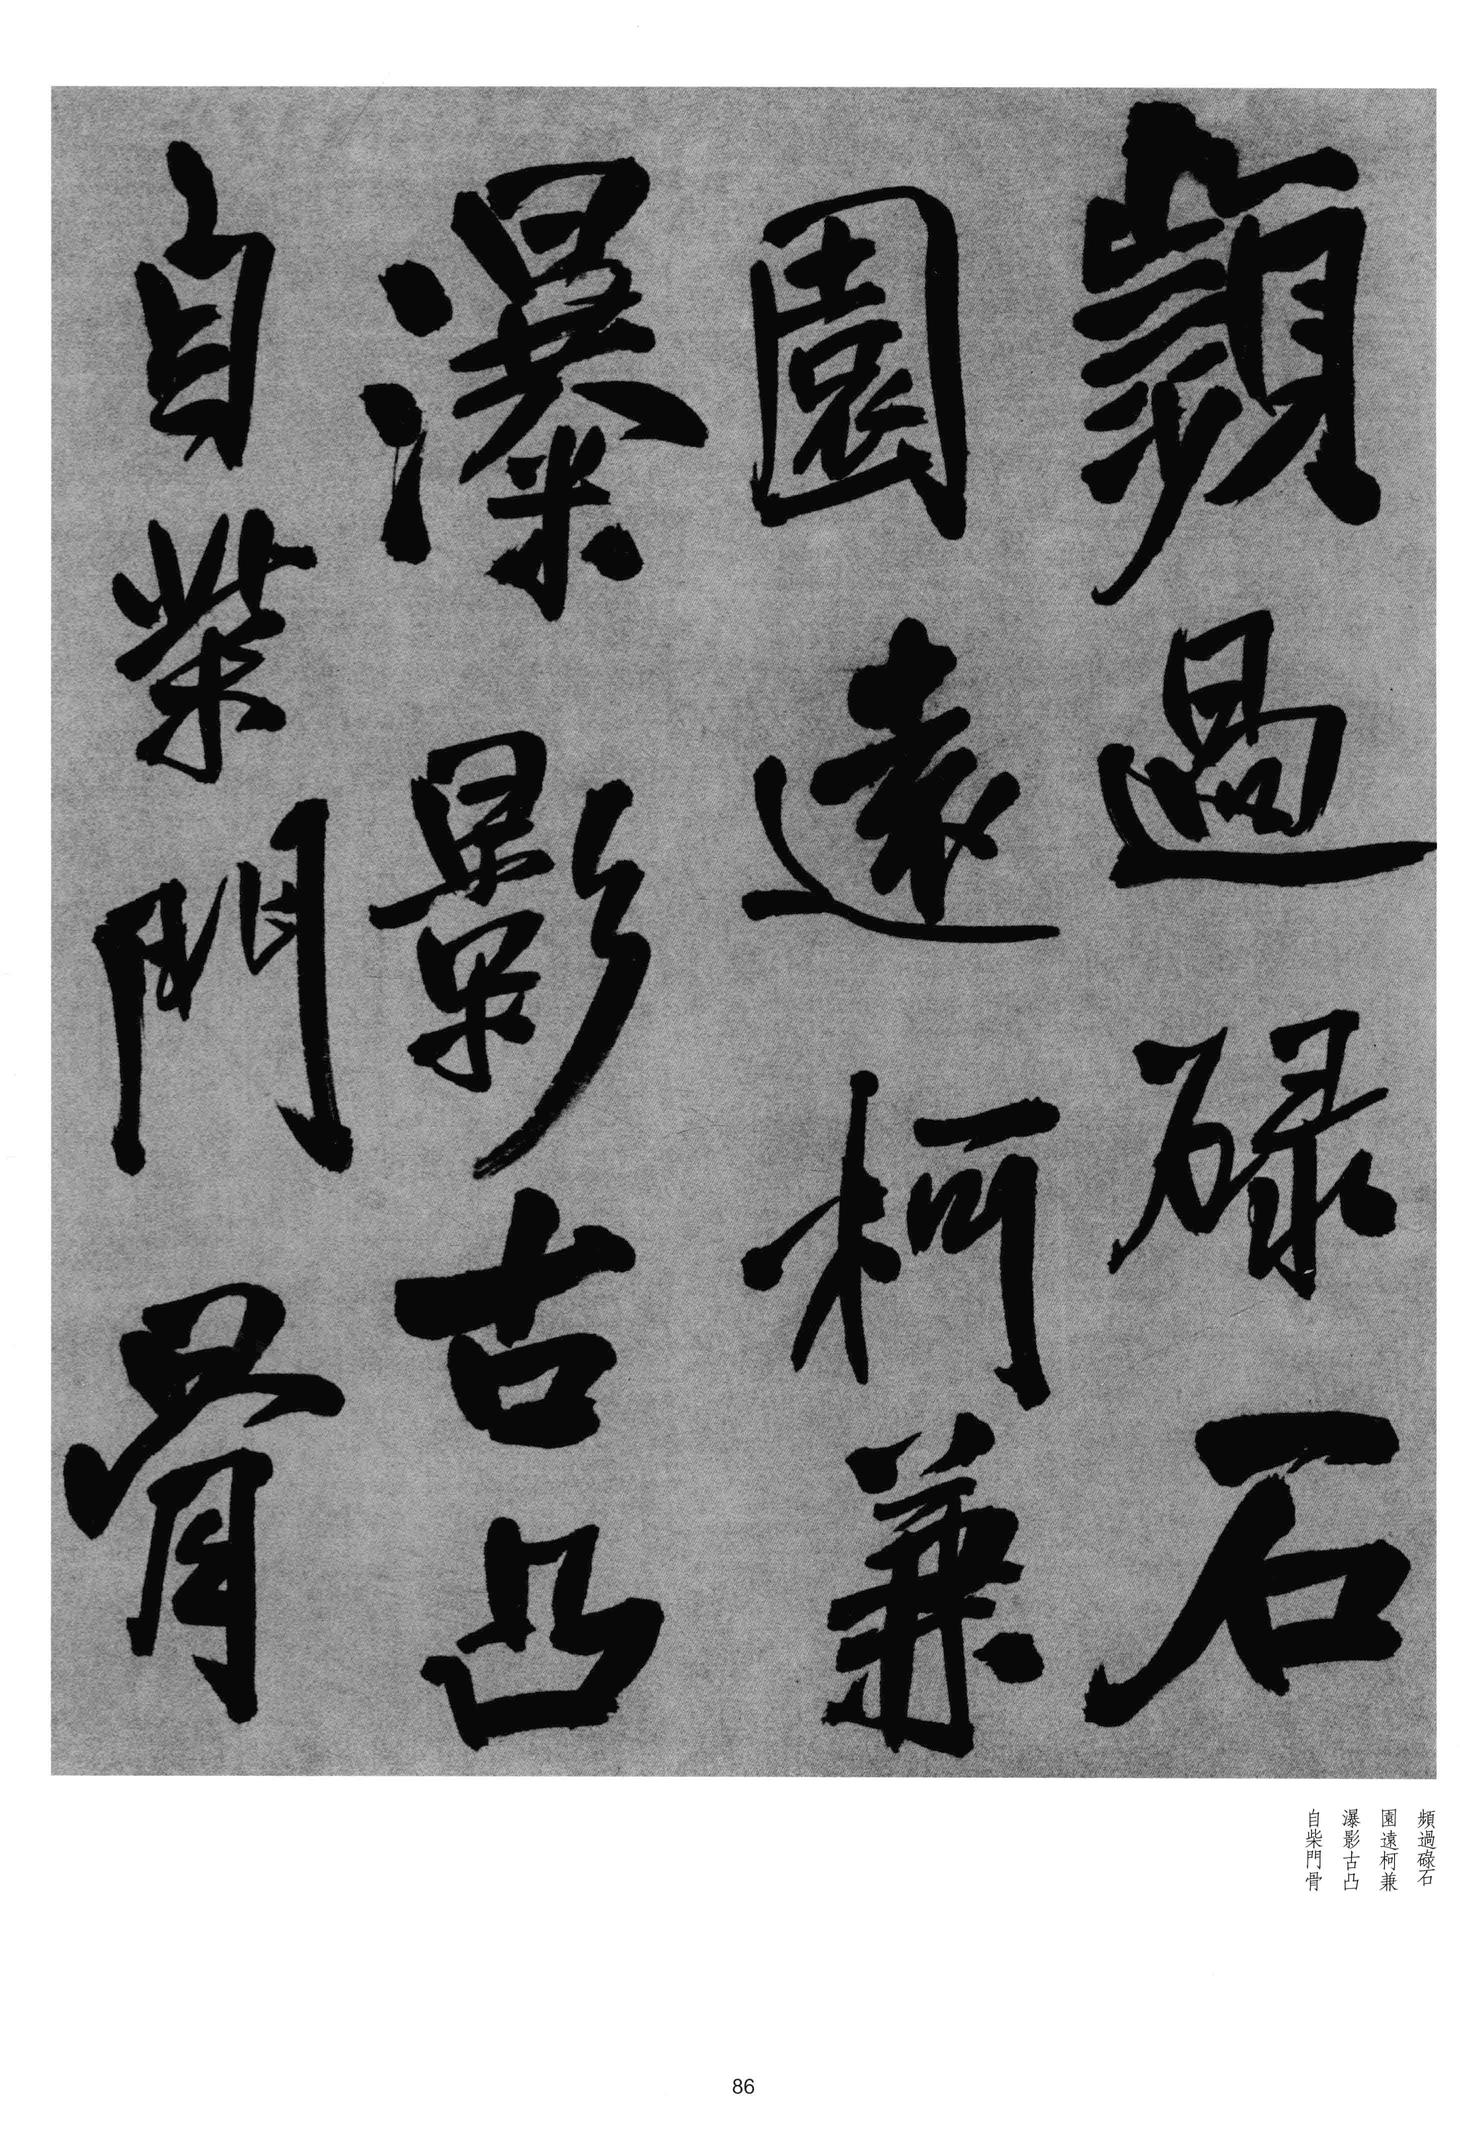 頻過碌石
園遠柯兼
瀑影古凸
自柴門骨
頻過碌石
園遠柯兼
瀑影古凸
自柴門骨
86